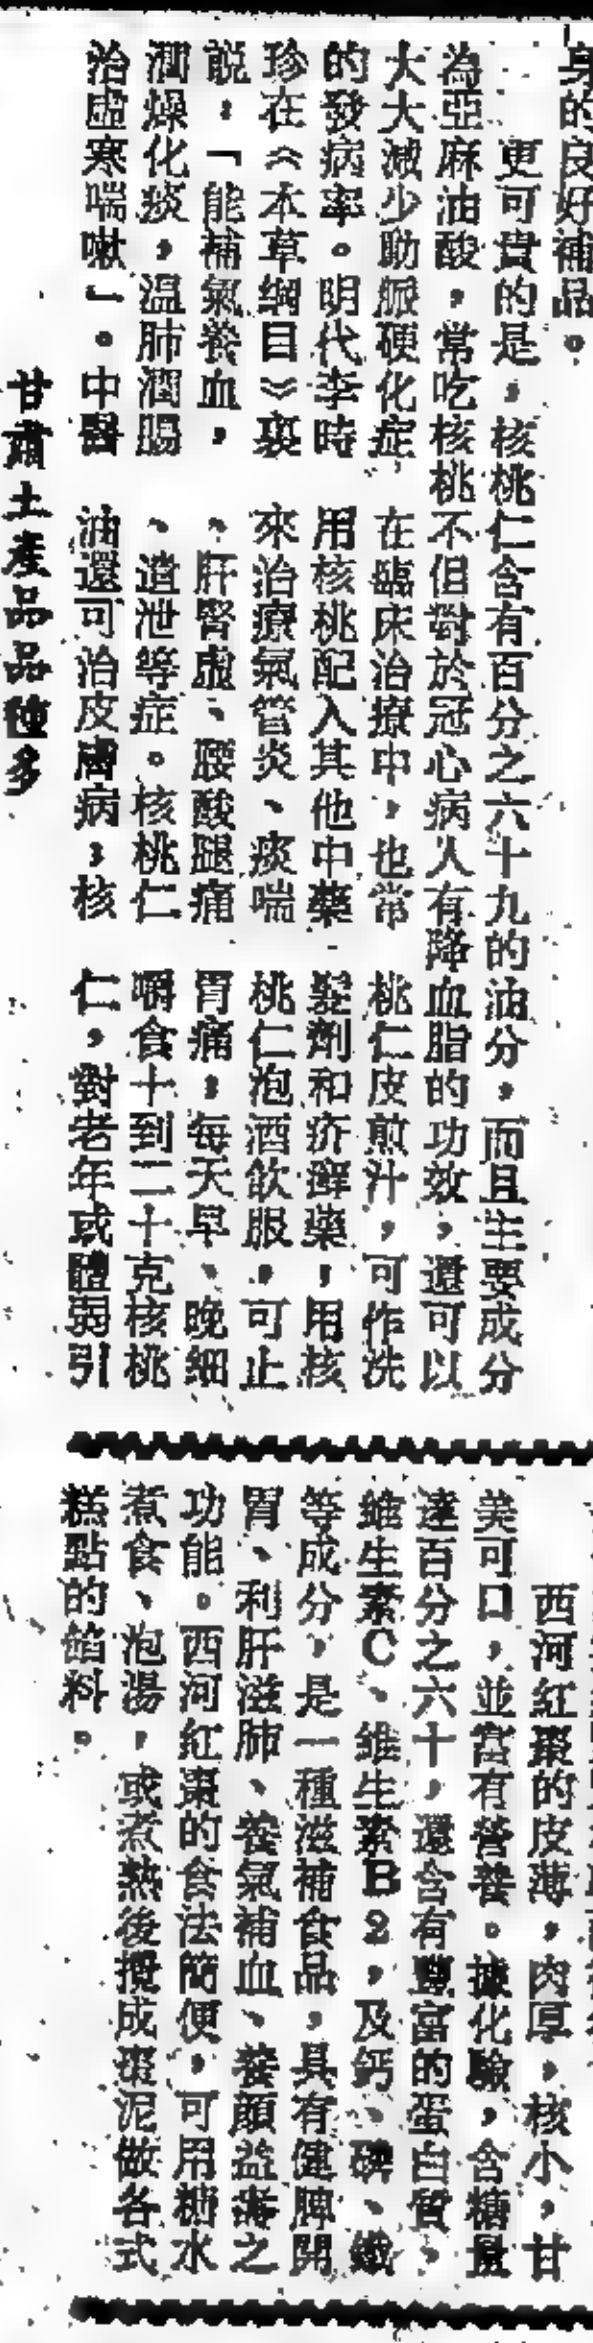 身的良好補品。
更可貴的是，核桃仁含有百分之六十九的油分，而且主要成分
為亞麻油酸，常吃核桃不但對於冠心病人有降血脂的功效，還可以
大大減少動脈硬化症
的發病率。明代李時
珍在《本草綱目》裏
説，「能補氣養血，
潤燥化痰，温肺潤腸
治虛寒喘嗽」。中醫
在臨床治療中，也常
用核桃配入其他中藥
來治療氣管炎、痰喘
、肝腎虛、腰酸腿痛
、遺泄等症。核桃仁
油還可治皮膚病，核
桃仁皮煎汁，可作洗
髮劑和疥癬藥，用核
桃仁泡酒飲服，可止
胃痛，每天早、晚细
嚼食十到二十克核桃
仁，對老年或體弱引
西河紅棗的皮薄，肉厚，核小，甘
美可口，並富有營養。據化驗，含糖量
達百分之六十，還含有豐富的蛋白質，
維生素C、維生素B2，及鈣、磷、鐵
等成分，是一種滋補食品，具有健脾開
胃、利肝滋肺、養氣補血、養顏益壽之
功能。西河紅棗的食法簡便，可用糖水
煮食、泡湯，或煮熟後攪成棗泥做各式
糕點的餡料。
甘肅土產品品種多